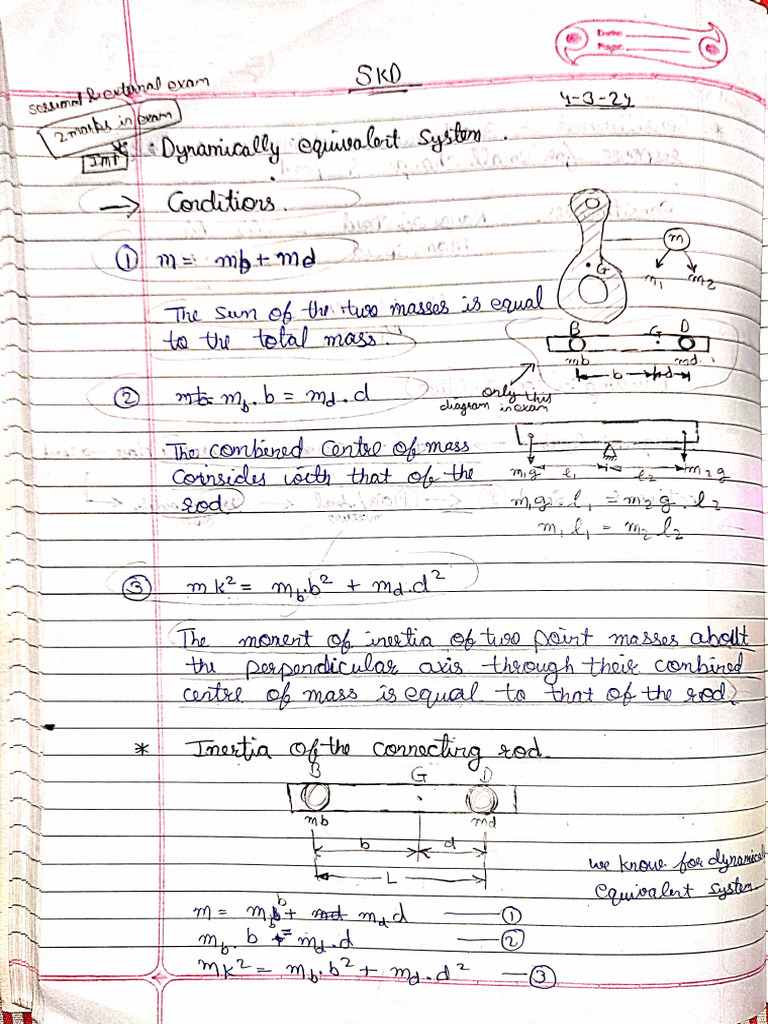 SKD
4-3-24
sessional & external exam
2 marks in exam
Imp
* Dynamically equivalent System.
→ Conditions.
① m = mb + md
The sum of the two masses is equal
to the total mass.
G
m
m1 m2
B G D
mb md
b d
only this
diagram in exam
② mb.b = md.d
The combered centre of mass
Coinsides with that of the
rod.
m1g l1 l2 m2g
m1g.l1 = m2g.l2
m1 l1 = m2 l2
③ mk² = mb.b² + md.d²
The moment of inertia of two point masses about
the perpendicular axis through their combined
centre of mass is equal to that of the rod.
* Inertia of the connecting rod.
B G D
mb md
b d
L
we know for dynamical
equivalent system.
m = mb b + md d —— ①
mb.b = md.d —— ②
mk² = mb.b² + md.d² — ③